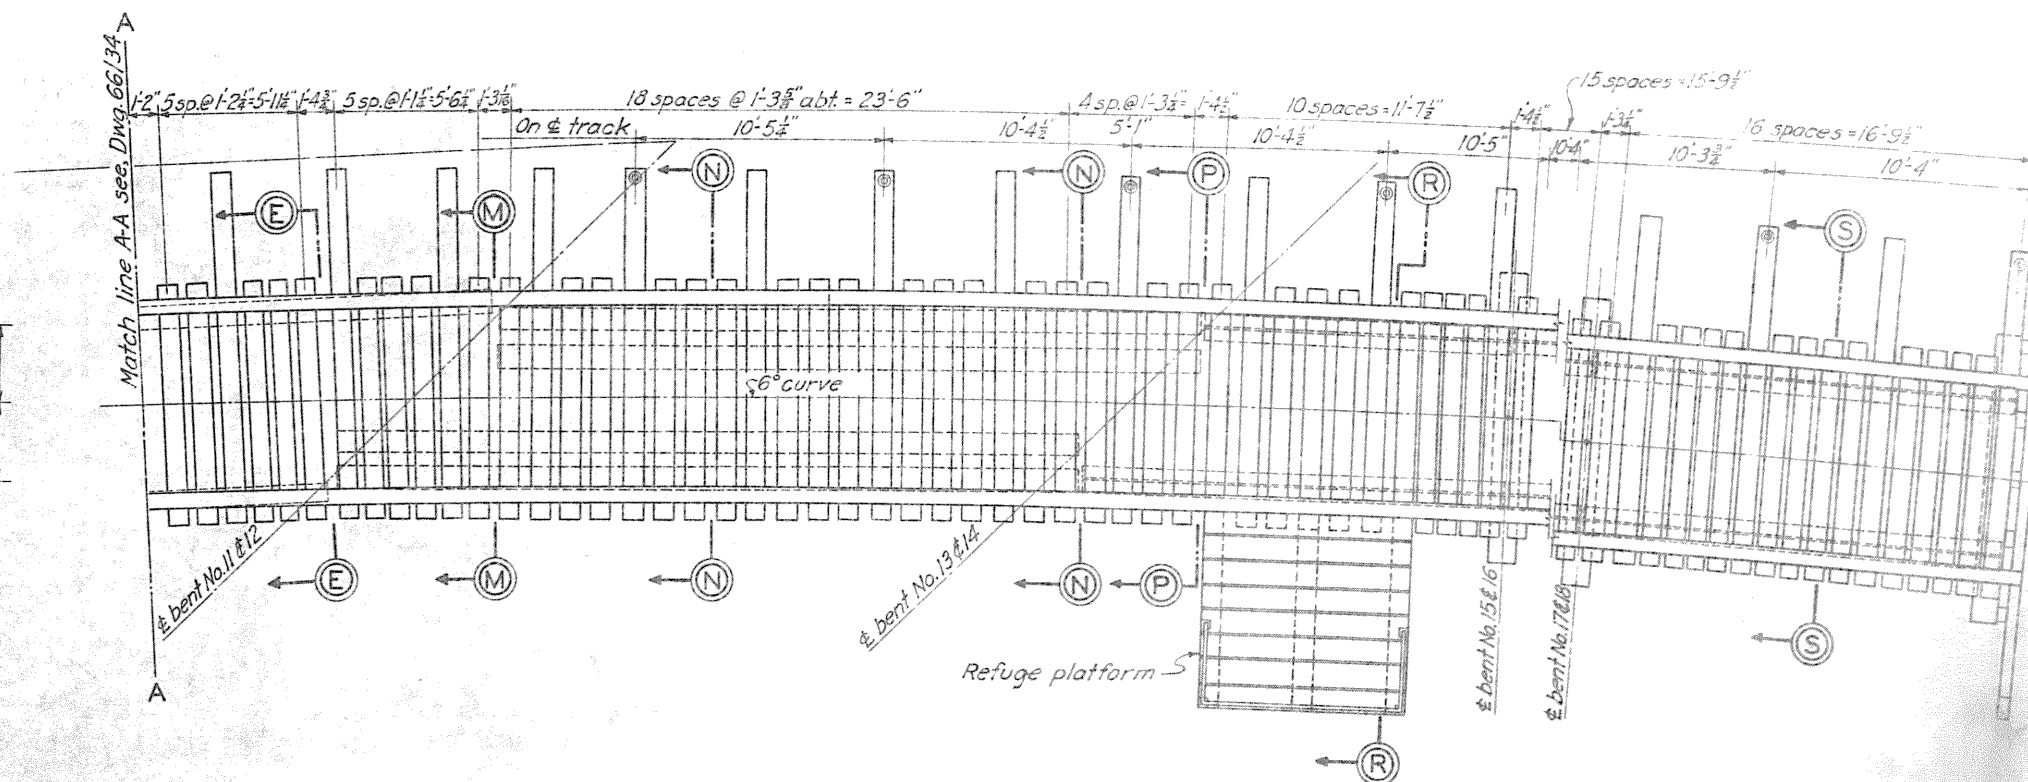 A
Match line A-A see. Dwg. 66134
1'-2" 5 sp. @ 1'-2¼"=5'-11¼" 1'-4¾" 5 sp. @ 1'-1¼"=5'-6¼" 1'-3 1/16" 18 spaces @ 1'-3⅝" abt. = 23'-6" 4 sp. @ 1'-3¼"= 5'-1" 1'-4½" 10 spaces = 11'-7½" 1'-4½" 15 spaces = 15'-9½" 1'-3¼" 16 spaces = 16'-9½"
On ℄ track 10'-5¼" 10'-4½" 10'-4½" 10'-5" 10'-4" 10'-3¾" 10'-4"
E M N N P R S
6° curve
E M N N P S
℄ bent No. 11 & 12
℄ bent No. 13 & 14
℄ bent No. 15 & 16
℄ bent No. 17 & 18
Refuge platform
A
R